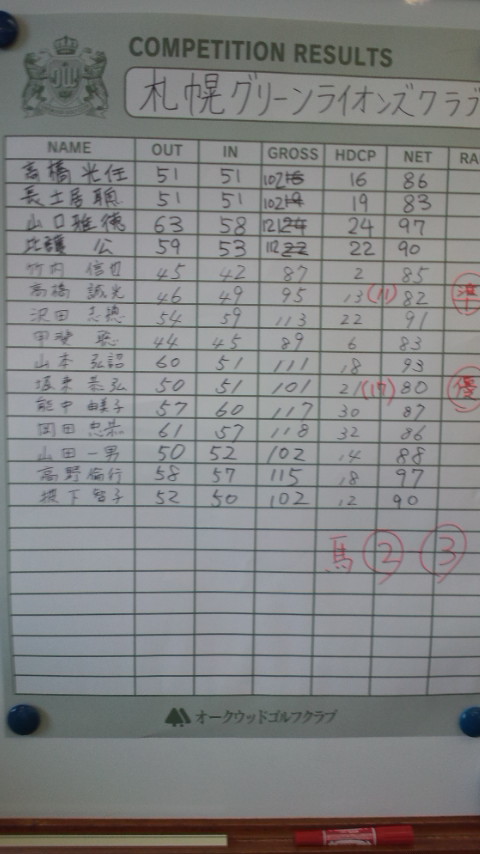 COMPETITION RESULTS
札幌グリーンライオンズクラブ
NAME OUT IN GROSS HDCP NET RA
高橋 光任 51 51 102 16 86
長土居 51 51 102 19 83
山口雅徳 63 58 121 24 97
公 59 53 112 22 90
竹内 信也 45 42 87 2 85
高橋 誠光 46 49 95 13 (11) 82 準
沢田 54 59 113 22 91
甲斐 44 45 89 6 83
山本 弘認 60 51 111 18 93
坂東 恭弘 50 51 101 21 (17) 80 優
能中 由美子 57 60 117 30 87
岡田 忠恭 61 57 118 32 86
山田 一男 50 52 102 14 88
高野倫行 58 57 115 18 97
坂下 智子 52 50 102 12 90
馬 2 3
オークウッドゴルフクラブ